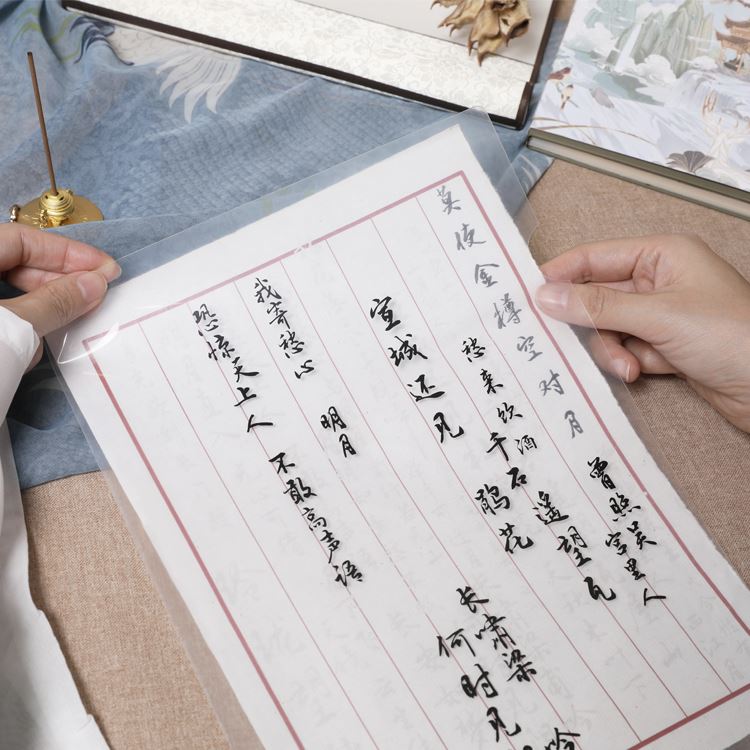 莫使金樽空对月
曾照吴宫里人
愁来饮酒千石
遥望瓦
宣城还见
鹃花
长啸梁
何时见
吟
我寄愁心
明月
恐惊天上人
不敢高声语